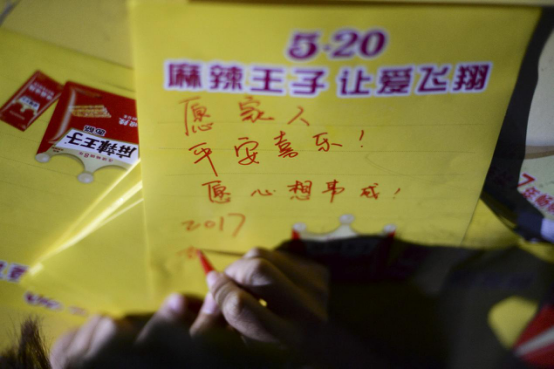 5·20
麻辣王子 让爱飞翔
愿家人
平安喜乐!
愿心想事成!
2017
麻辣王子